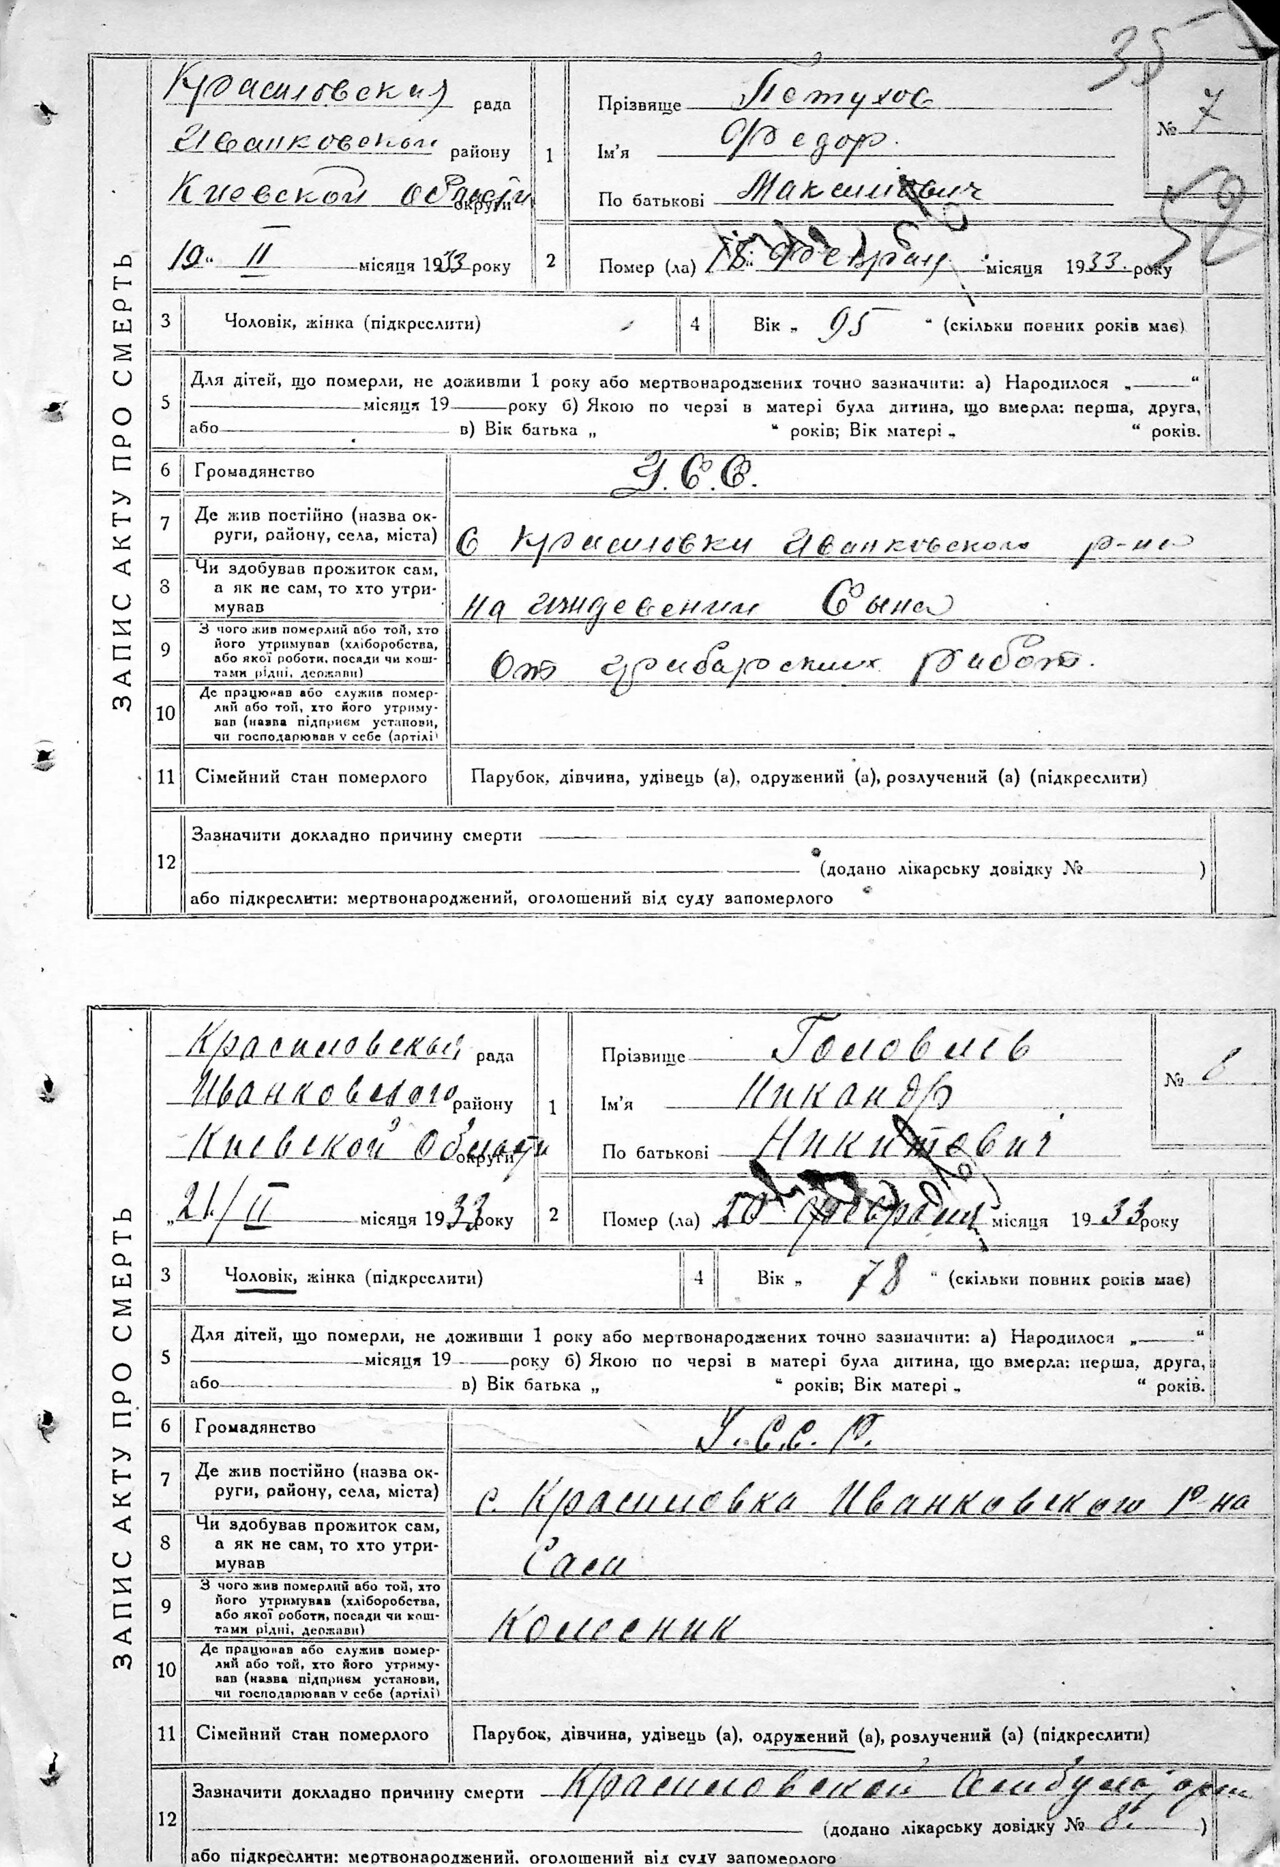 35
ЗАПИС АКТУ ПРО СМЕРТЬ
Красиловская рада
Иванковской району
Киевской области округи
19 „ II місяця 1933 року
1
Прізвище Петухов
Ім'я Федор.
По батькові Максимович
№ 7
52
2
Помер (ла) 18 февраля місяця 1933. року
3 Чоловік, жінка (підкреслити)
4 Вік „ 95 “ (скільки повних років має)
5
Для дітей, що померли, не доживши 1 року або мертвонароджених точно зазначити: а) Народилося „ “
місяця 19 року б) Якою по черзі в матері була дитина, що вмерла: перша, друга,
або в) Вік батька „ “ років; Вік матері „ “ років.
6 Громадянство У.С.С.
7 Де жив постійно (назва ок-
руги, району, села, міста) с Красиловки Иванковского р-на
8 Чи здобував прожиток сам,
а як не сам, то хто утри-
мував на иждевении Сына
9 З чого жив померлий або той, хто
його утримував (хліборобства,
або якої роботи, посади чи кош-
тами рідні, держави) От работ.
10 Де працював або служив помер-
лий або той, хто його утриму-
вав (назва підприєм установи,
чи господарював у себе (артілі)
11 Сімейний стан померлого Парубок, дівчина, удівець (а), одружений (а), розлучений (а) (підкреслити)
12
Зазначити докладно причину смерти
(додано лікарську довідку № )
або підкреслити: мертвонароджений, оголошений від суду запомерлого
ЗАПИС АКТУ ПРО СМЕРТЬ
Красиловская рада
Иванковского району
Киевской Области округи
„21/ II місяця 1933 року
1
Прізвище Головлев
Ім'я Никандр
По батькові Никитович
№ 8
2
Помер (ла) 20 февраля місяця 1933 року
3 Чоловік, жінка (підкреслити)
4 Вік „ 78 “ (скільки повних років має)
5
Для дітей, що померли, не доживши 1 року або мертвонароджених точно зазначити: а) Народилося „ “
місяця 19 року б) Якою по черзі в матері була дитина, що вмерла: перша, друга,
або в) Вік батька „ “ років; Вік матері „ “ років.
6 Громадянство У.С.С.Р.
7 Де жив постійно (назва ок-
руги, району, села, міста) с. Красиловка Иванковского р-на
8 Чи здобував прожиток сам,
а як не сам, то хто утри-
мував Сам
9 З чого жив померлий або той, хто
його утримував (хліборобства,
або якої роботи, посади чи кош-
тами рідні, держави) Колесник
10 Де працював або служив помер-
лий або той, хто його утриму-
вав (назва підприєм установи,
чи господарював у себе (артілі)
11 Сімейний стан померлого Парубок, дівчина, удівець (а), одружений (а), розлучений (а) (підкреслити)
12
Зазначити докладно причину смерти Красиловской
(додано лікарську довідку № 8. )
або підкреслити: мертвонароджений, оголошений від суду запомерлого